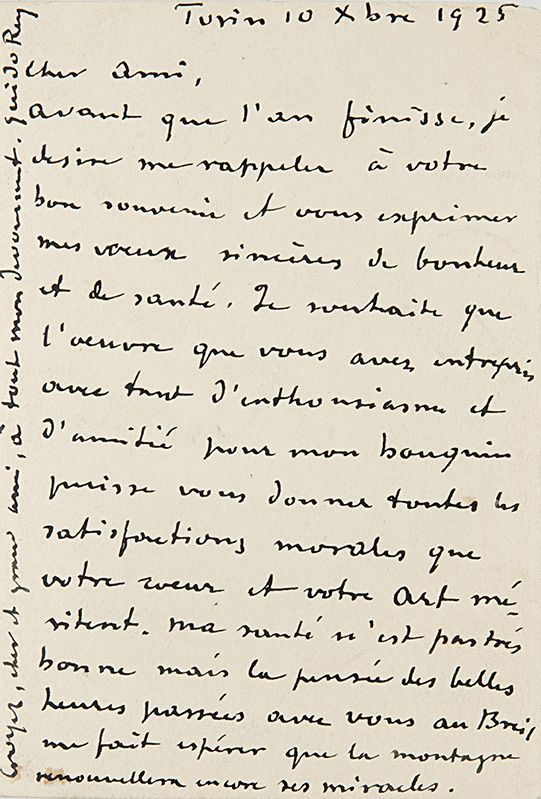 Turin 10 Xbre 1925
Cher ami,
avant que l'an finisse, je
desire me rappeler à votre
bon souvenir et vous exprimer
mes vœux sincères de bonheur
et de santé. Je souhaite que
l'oeuvre que vous avez entrepris
avec tant d'enthousiasme et
d'amitié pour mon bouquin
puisse vous donner toutes les
satisfactions morales que
votre cœur et votre art mé-
ritent. Ma santé n'est pas très
bonne mais la pensée des belles
heures passées avec vous au Breil
me fait espérer que la montagne
renouvellera encore ses miracles.
Croyez, cher et grand ami, à tout mon devouement. Guido Rey